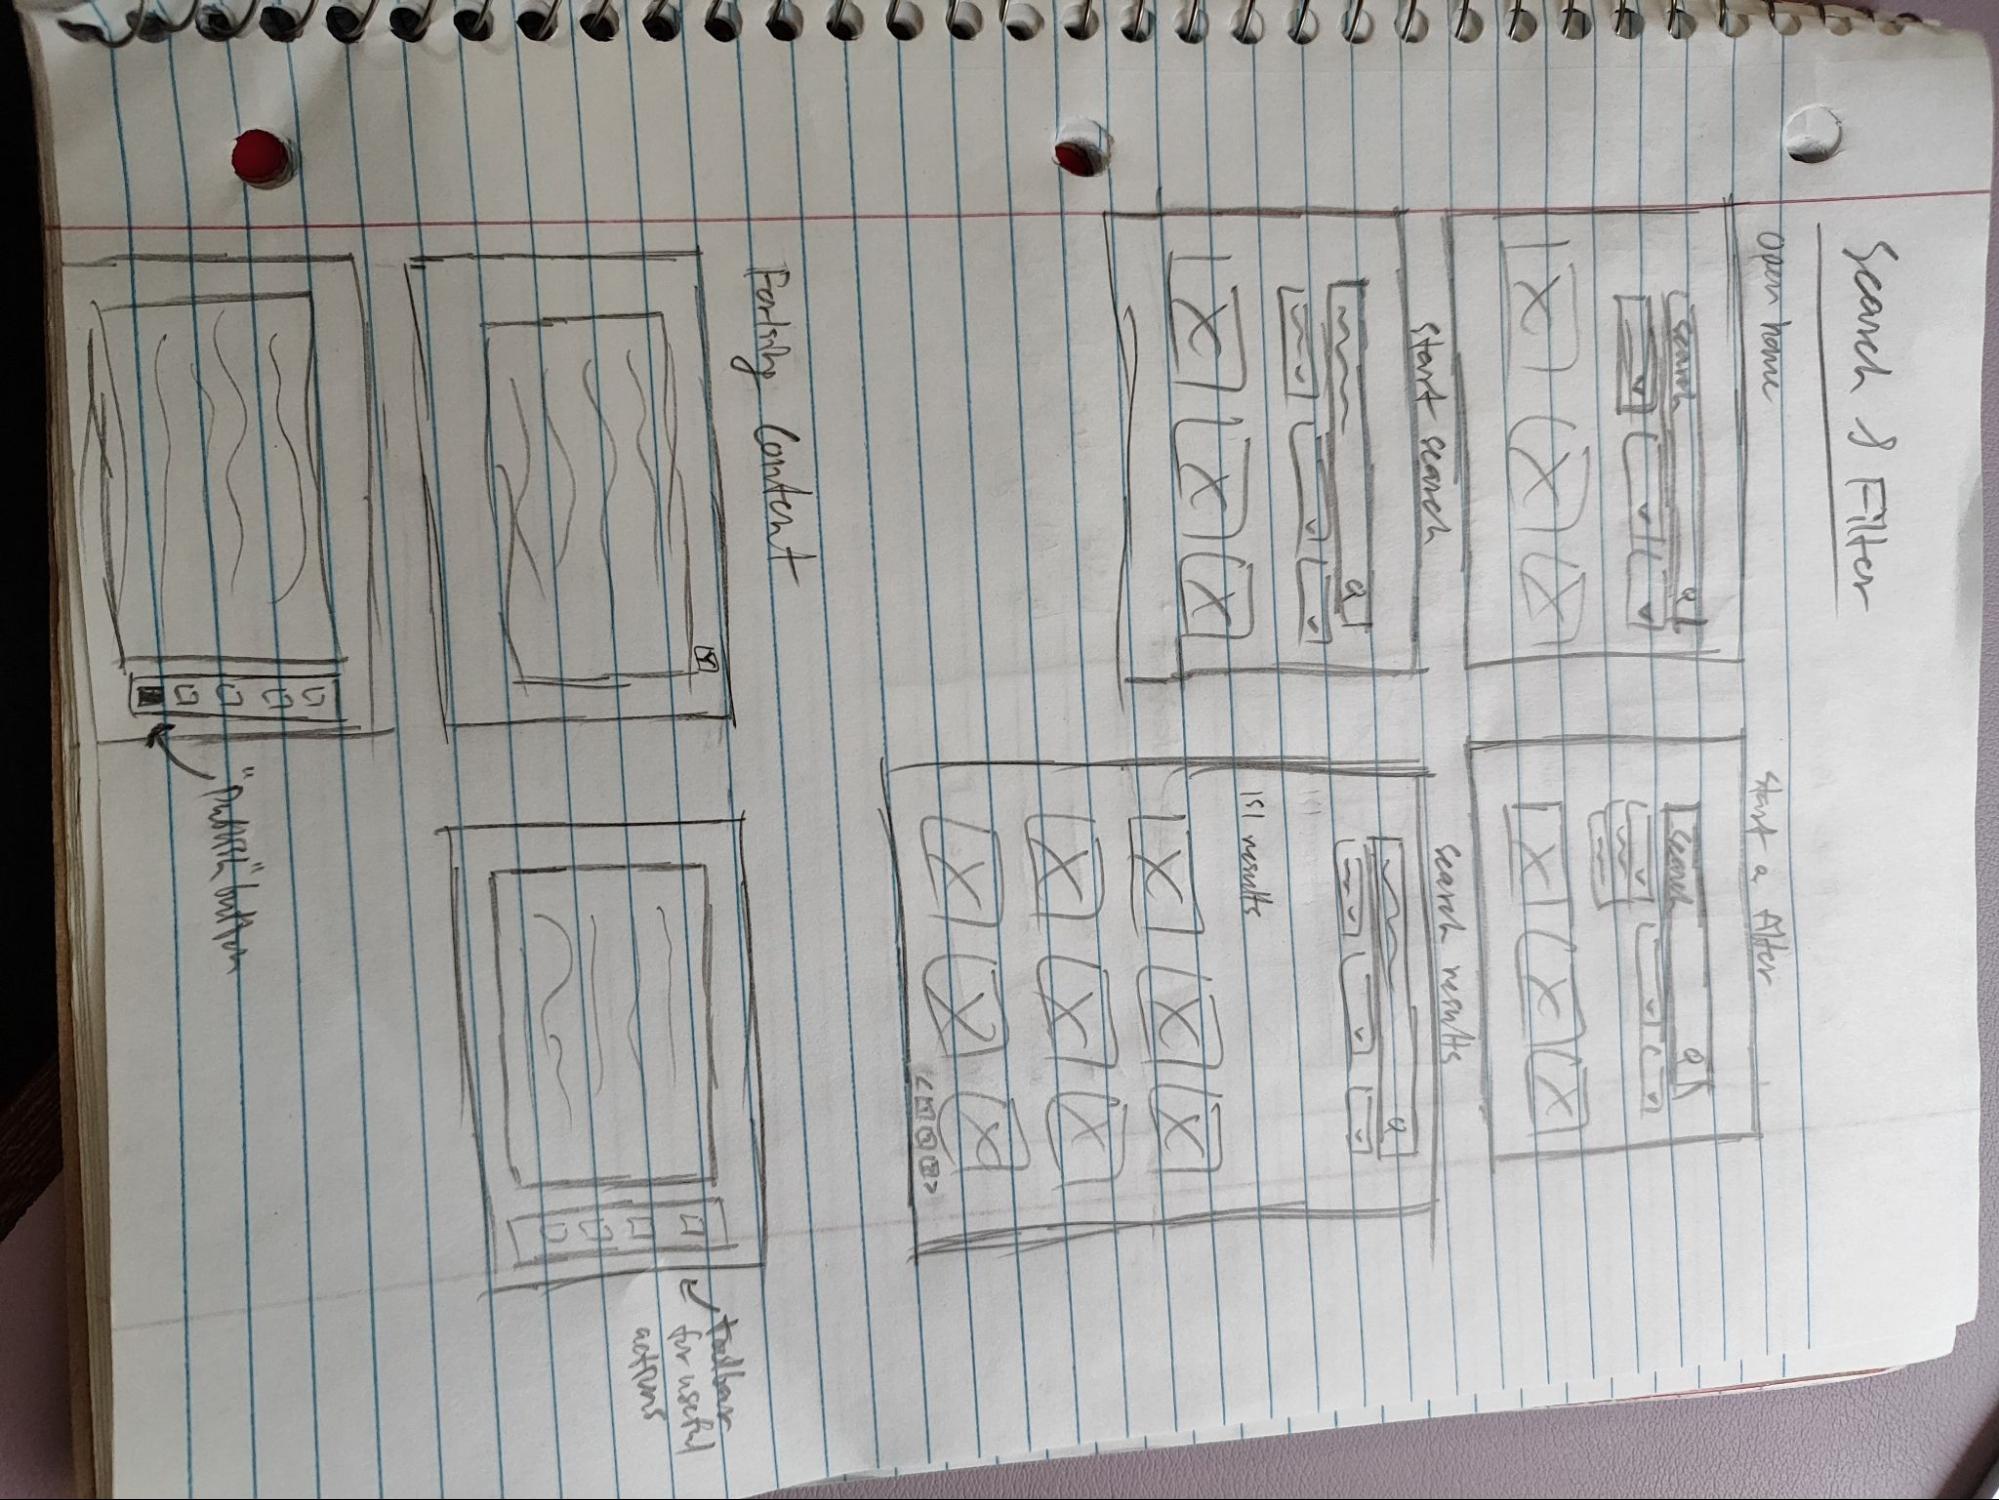 Search & Filter
open home
start a filter
search
search
start search
search results
151 results
< 1 2 3 >
Content
toolbar
for useful
actions
"Publish" button